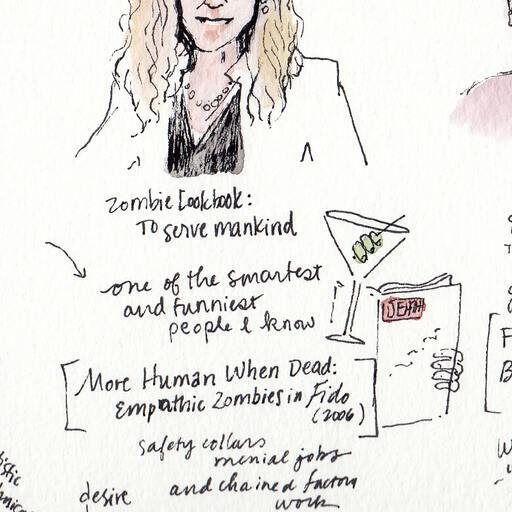 zombie Cookbook:
To serve mankind
one of the smartest
and funniest
people I know
DEATH
[More Human When Dead:
Empathic Zombies in Fido
(2006)]
safety collars
menial jobs
desire and chained factory
work